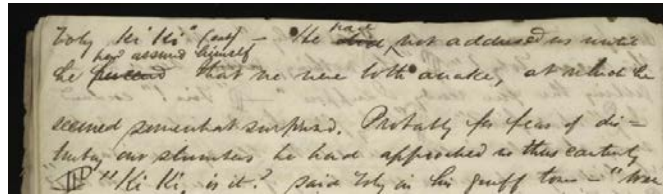 Toby "Ki Ki" (eat) — He had not addressed us until
had assured himself
he that we were both awake, at which he
seemed somewhat surprised. Probably for fear of dis-
turbing our slumbers he had approached us thus
"Ki Ki, is it?" said Toby in his gruff tones — "